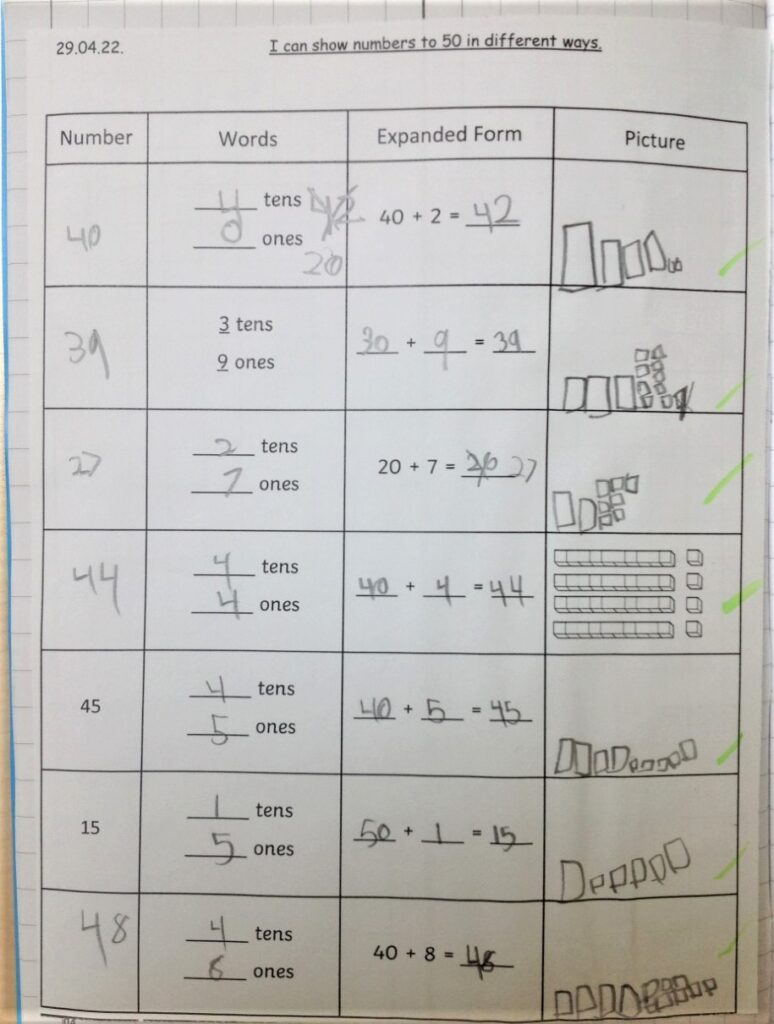 29.04.22. I can show numbers to 50 in different ways.
Number Words Expanded Form Picture
40 4 tens 40 + 2 = 42
0 ones
20
39 3 tens 30 + 9 = 39
9 ones
27 2 tens 20 + 7 = 27
7 ones
44 4 tens 40 + 4 = 44
4 ones
45 4 tens 40 + 5 = 45
5 ones
15 1 tens 50 + 1 = 15
5 ones
48 4 tens 40 + 8 = 48
8 ones